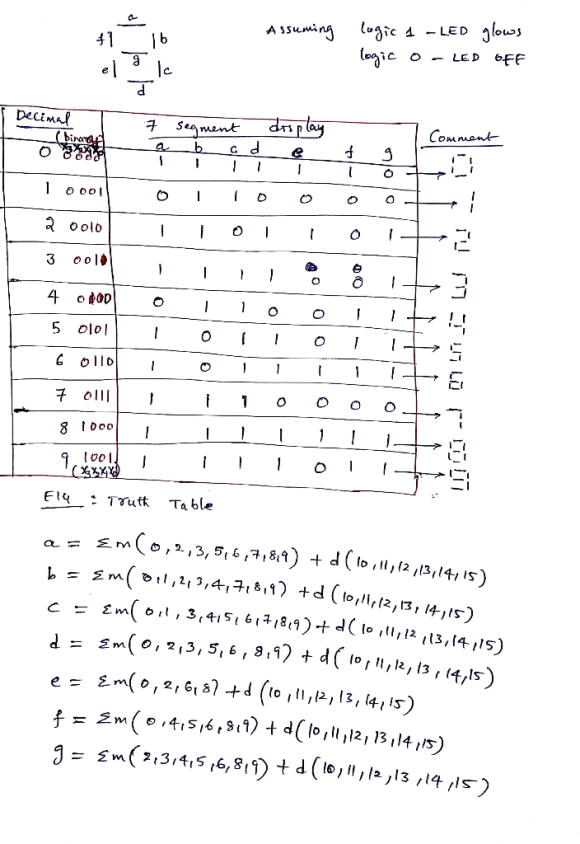 a
f b
g
e c
d
Assuming logic 1 - LED glows
logic 0 - LED OFF
Decimal 7 segment display Comment
(binary) a b c d e f g
0 0000 1 1 1 1 1 1 0 → 0
1 0001 0 1 1 0 0 0 0 → 1
2 0010 1 1 0 1 1 0 1 → 2
3 0011 1 1 1 1 0 0 1 → 3
4 0100 0 1 1 0 0 1 1 → 4
5 0101 1 0 1 1 0 1 1 → 5
6 0110 1 0 1 1 1 1 1 → 6
7 0111 1 1 1 0 0 0 0 → 7
8 1000 1 1 1 1 1 1 1 → 8
9 1001 1 1 1 1 0 1 1 → 9
F14 : Truth Table
a = Σm(0,2,3,5,6,7,8,9) + d(10,11,12,13,14,15)
b = Σm(0,1,2,3,4,7,8,9) + d(10,11,12,13,14,15)
c = Σm(0,1,3,4,5,6,7,8,9) + d(10,11,12,13,14,15)
d = Σm(0,2,3,5,6,8,9) + d(10,11,12,13,14,15)
e = Σm(0,2,6,8) + d(10,11,12,13,14,15)
f = Σm(0,4,5,6,8,9) + d(10,11,12,13,14,15)
g = Σm(2,3,4,5,6,8,9) + d(10,11,12,13,14,15)